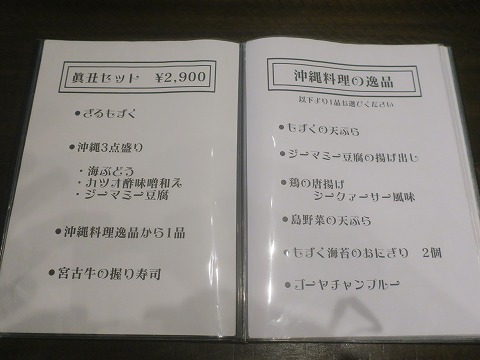 眞丑セット ¥2,900
●ざるもずく
●沖縄3点盛り
・海ぶどう
・カツオ酢味噌和え
・ジーマミー豆腐
●沖縄料理逸品から1品
●宮古牛の握り寿司
沖縄料理の逸品
以下より1品お選びください
●もずくの天ぷら
●ジーマミー豆腐の揚げ出し
●鶏の唐揚げ
シークァーサー風味
●島野菜の天ぷら
●もずく海苔のおにぎり 2個
●ゴーヤチャンプルー